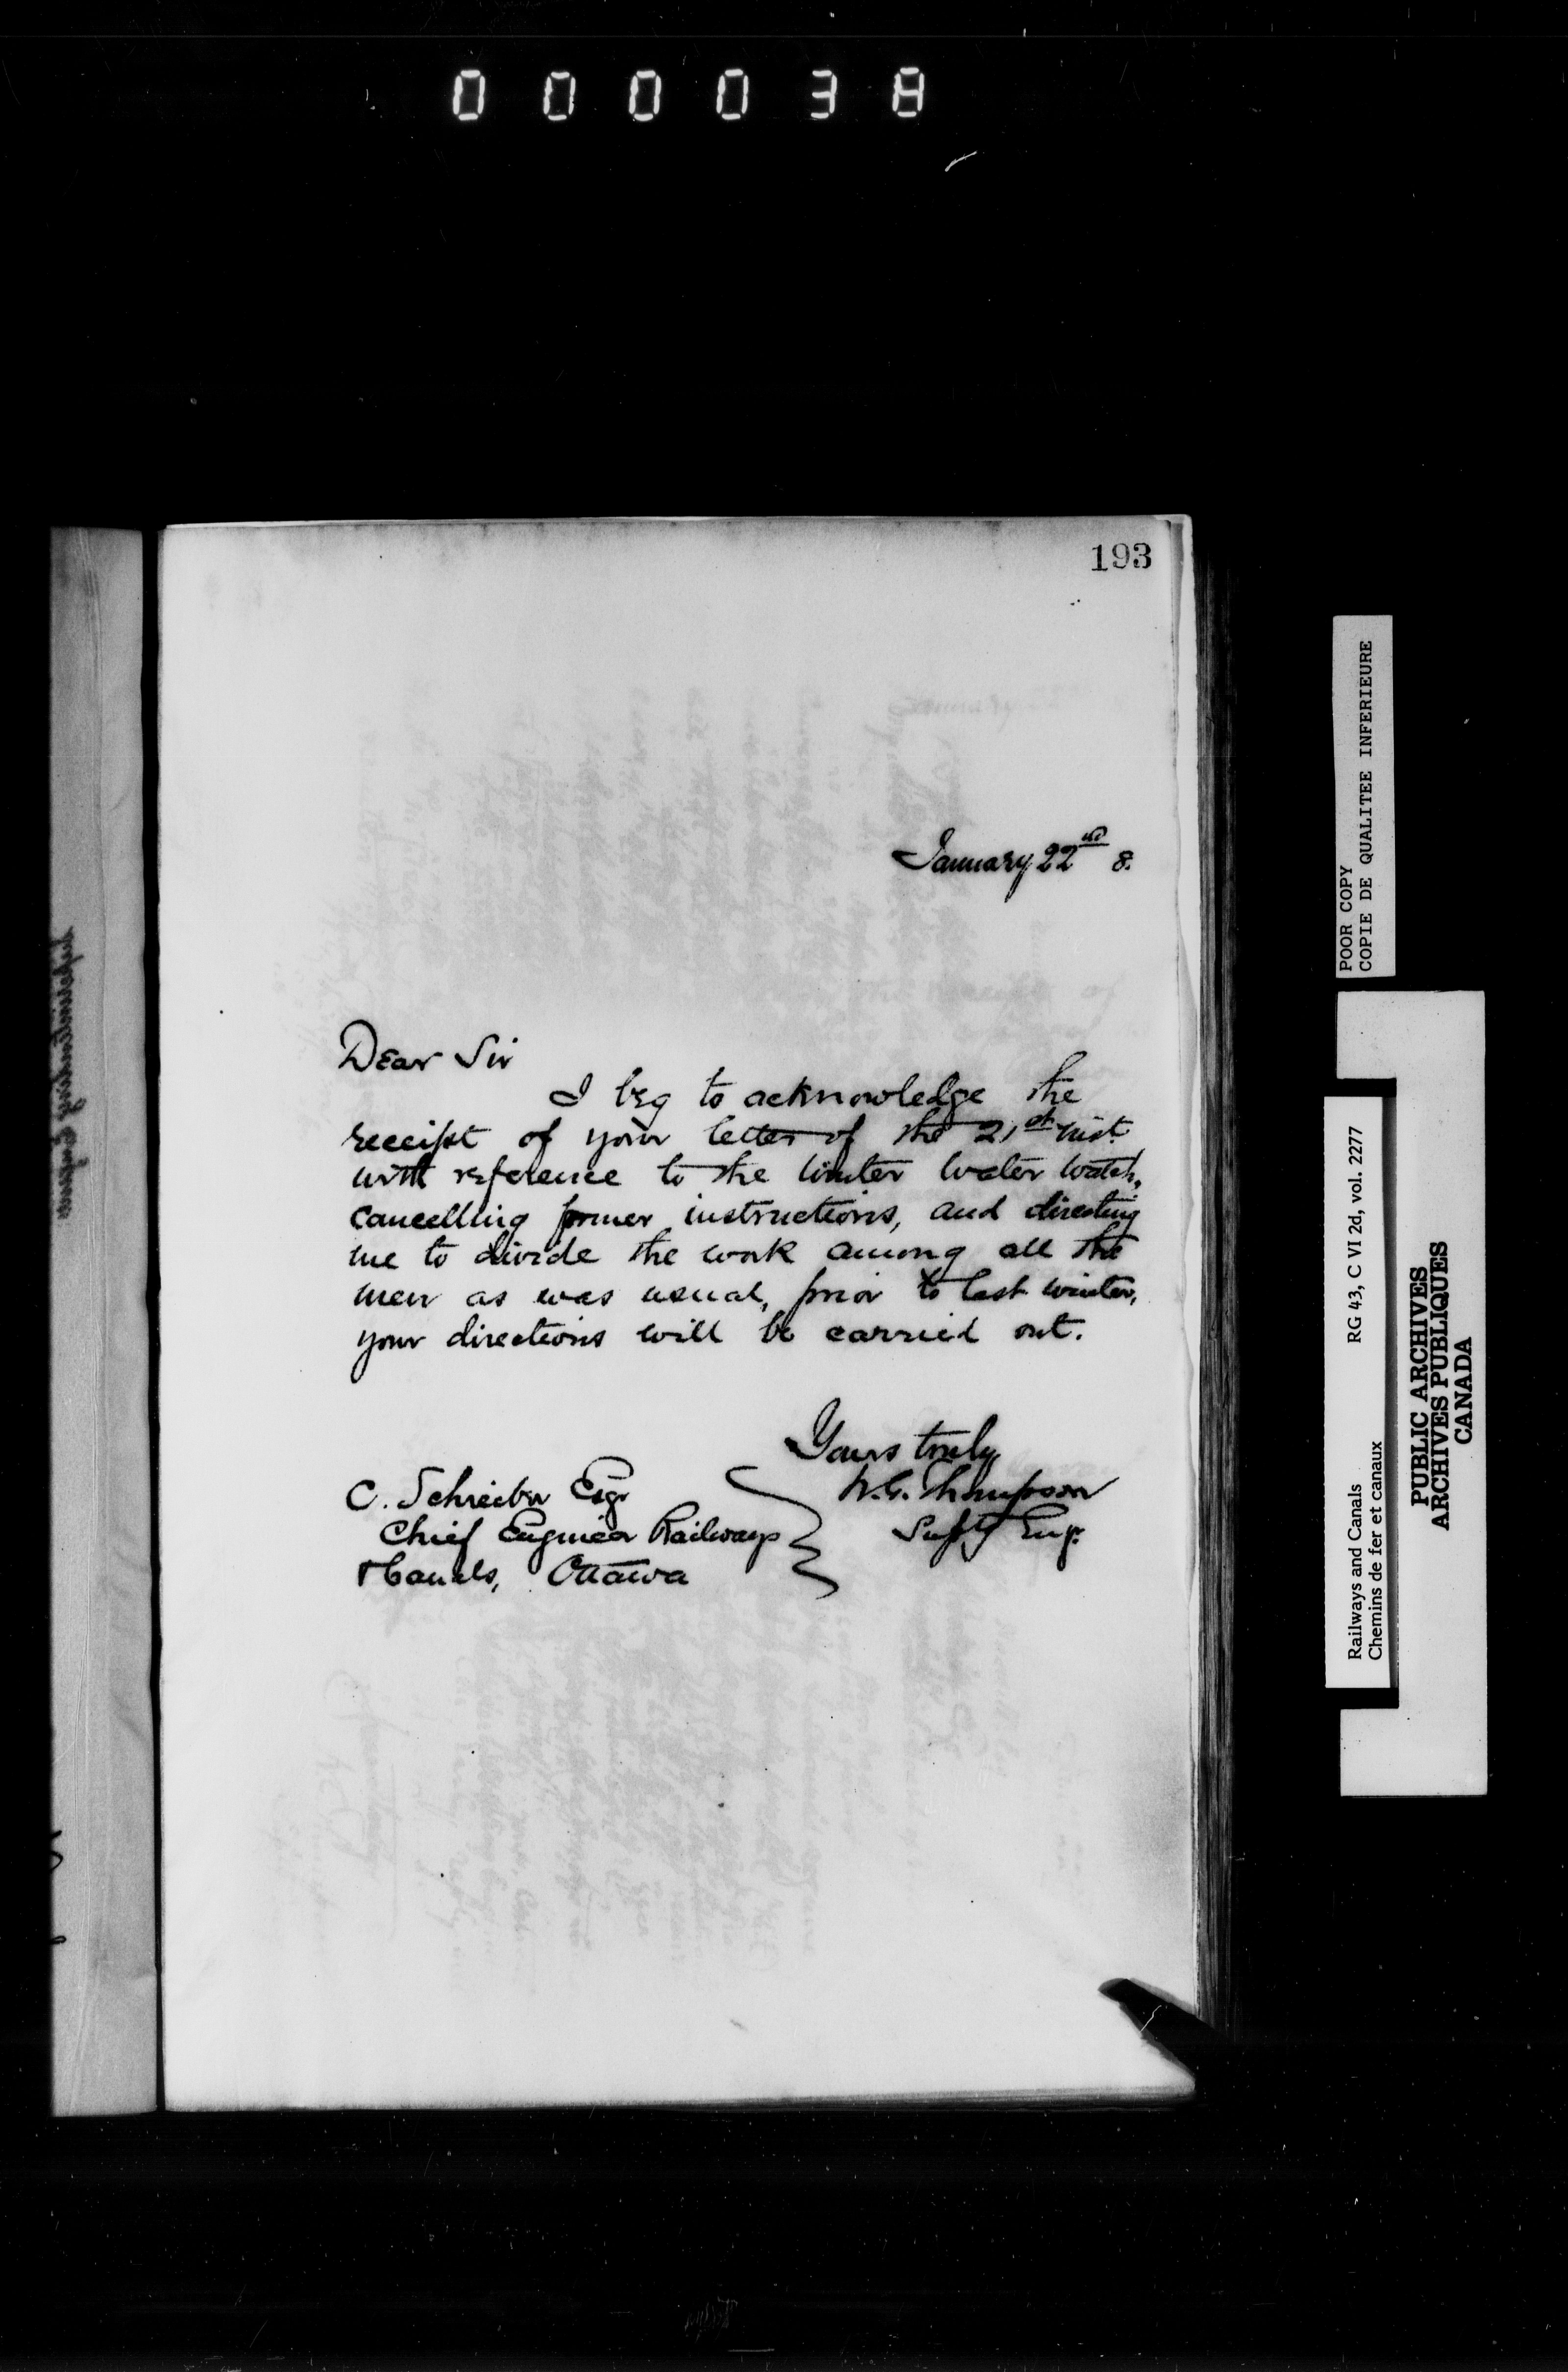 000038
193
January 22nd 8.
Dear Sir
I beg to acknowledge the
receipt of your letter of the 21st inst.
with reference to the Winter Water Watch,
cancelling former instructions, and directing
me to divide the work among all the
men as was usual, prior to last winter,
your directions will be carried out.
Yours truly
W.G. Thompson
Supty Eng.
C. Schreiber Esqr
Chief Engineer Railways
& Canals, Ottawa
POOR COPY
COPIE DE QUALITEE INFERIEURE
Railways and Canals RG 43, C VI 2d, vol. 2277
Chemins de fer et canaux
PUBLIC ARCHIVES
ARCHIVES PUBLIQUES
CANADA